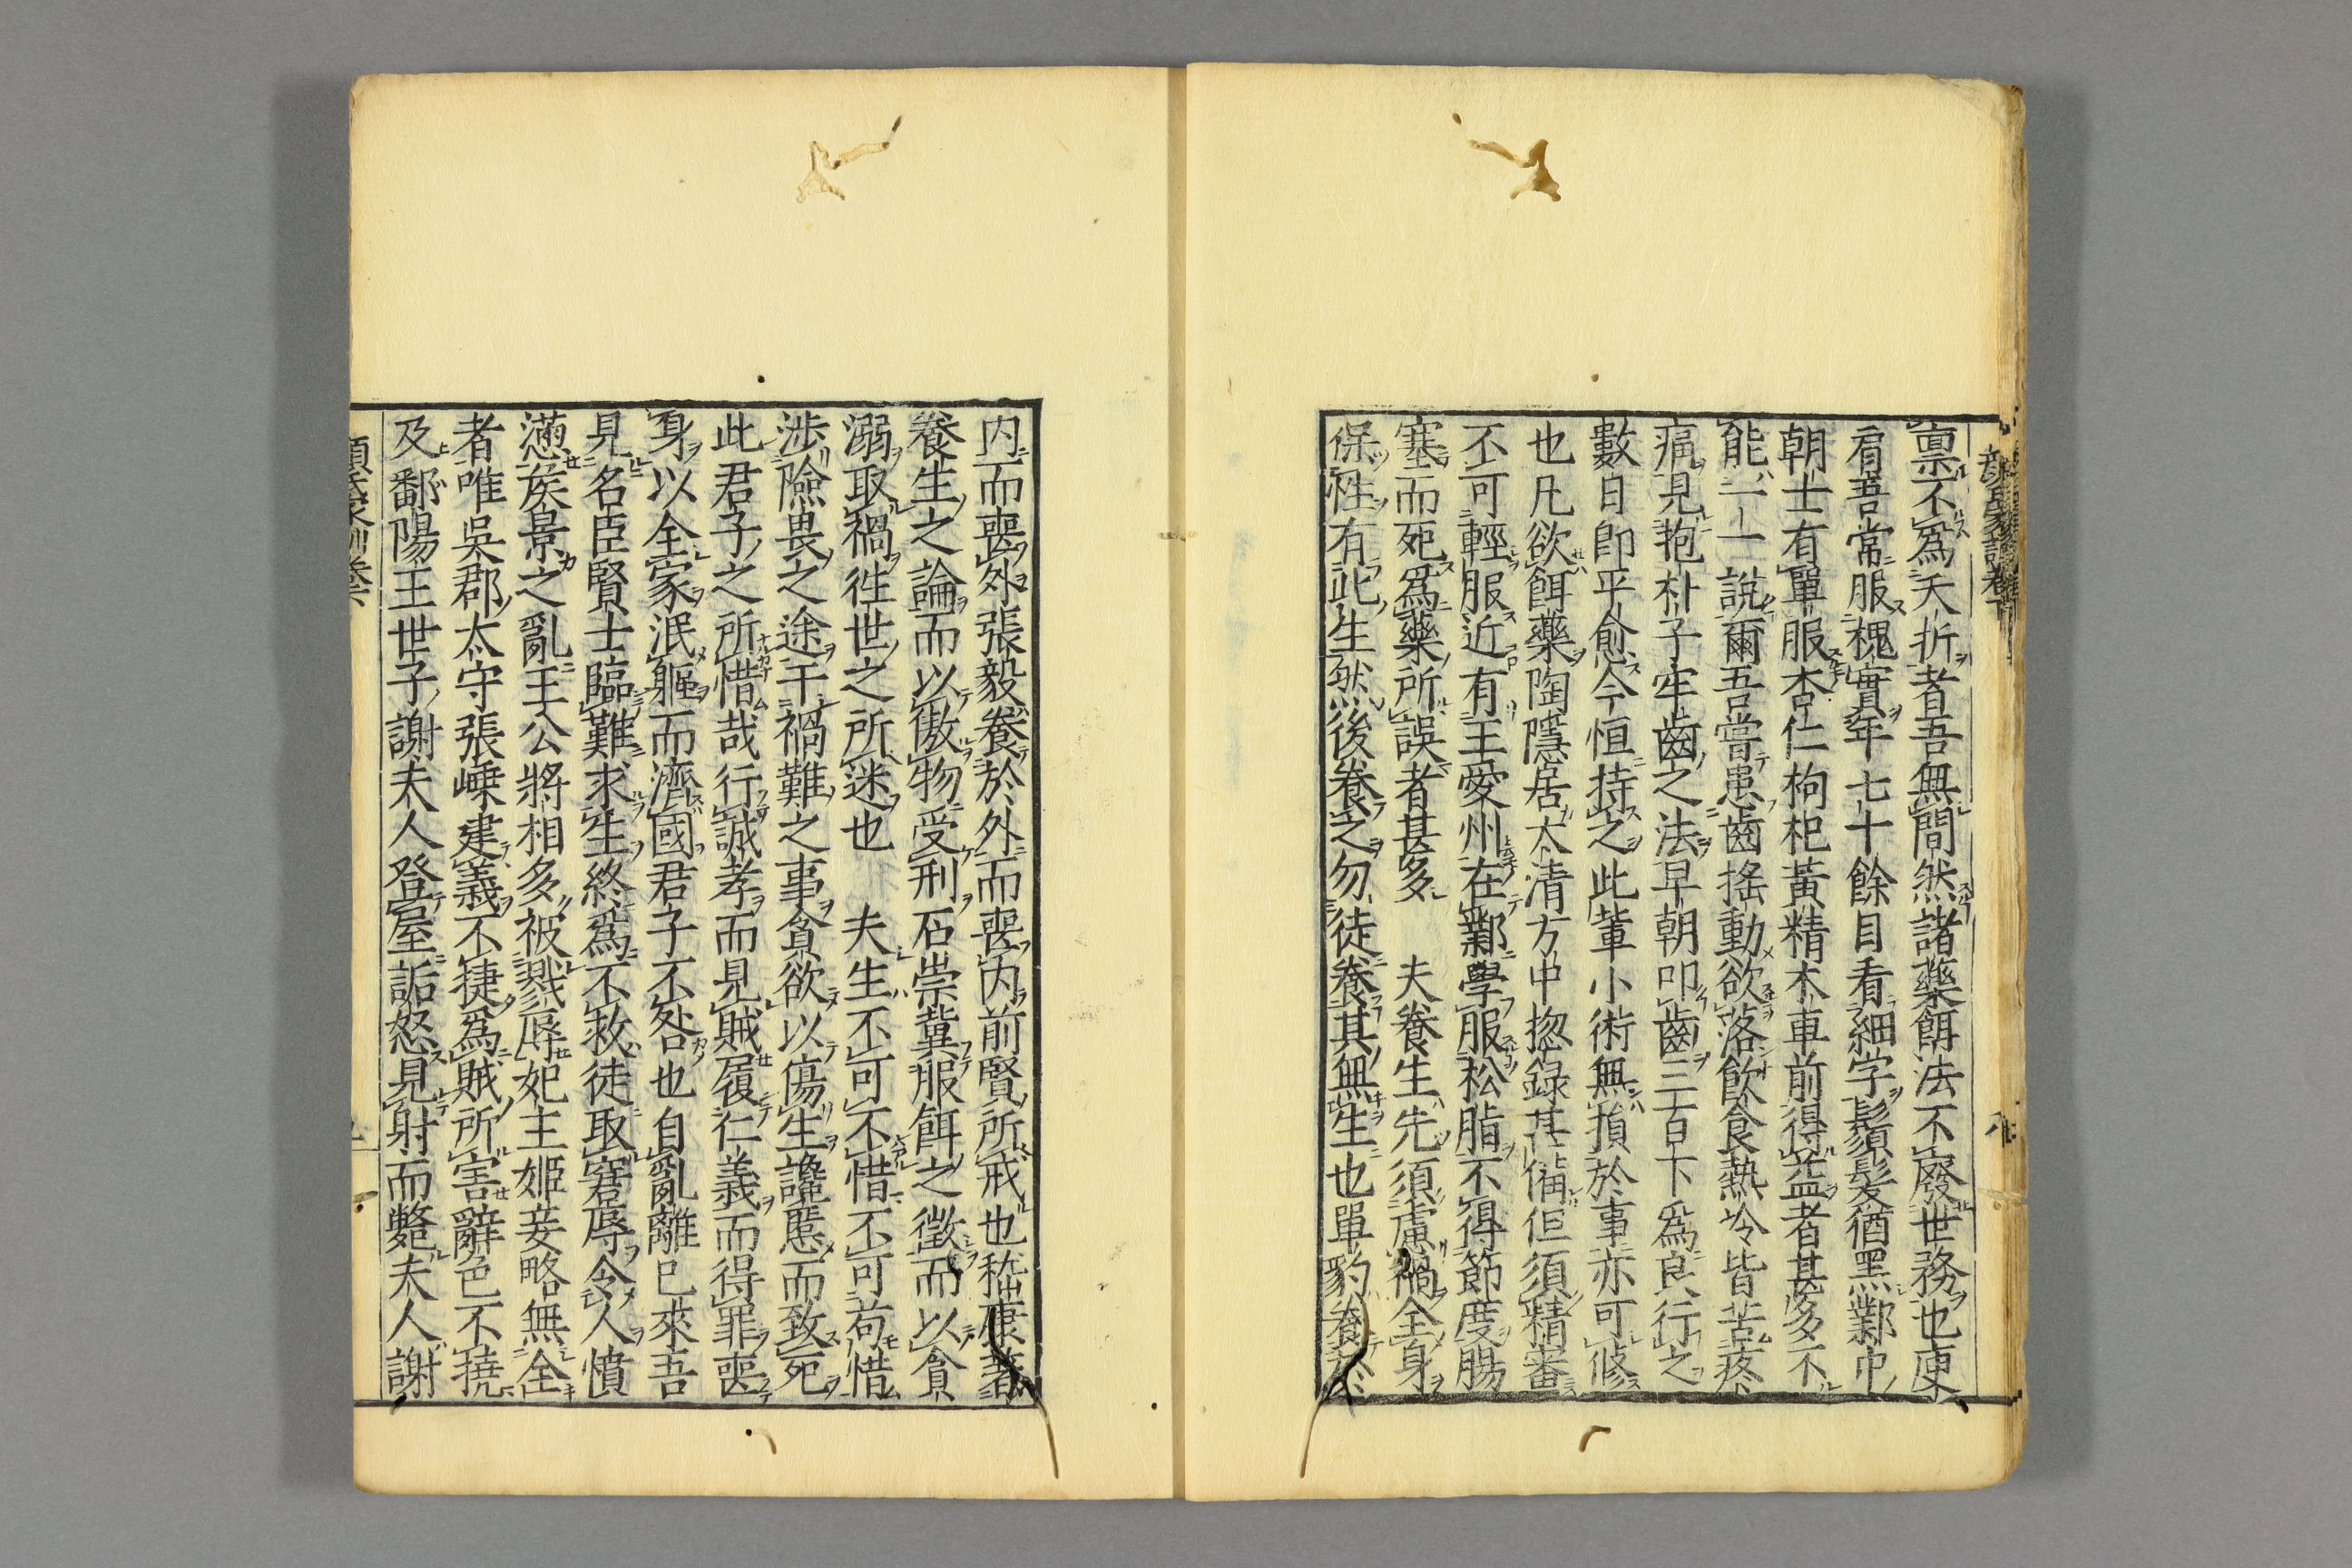 稟不爲夭折者吾無間然諸藥餌法不廢世務也庾
肩吾常服槐實年七十餘目看細字鬚髮猶黑鄴中
朝士有單服杏仁枸杞黃精木車前得益者甚多不
能一一說爾吾嘗患齒搖動欲落飲食熱冷皆苦疼
痛見抱朴子牢齒之法早朝叩齒三百下爲良行之
數日即平愈今恒持之此輩小術無損於事亦可修
也凡欲餌藥陶隱居太清方中惣録甚俻但須精審
不可輕服近有王愛州在鄴學服松脂不得節度腸
塞而死爲藥所誤者甚多　夫養生先須慮禍全身
保性有此生然後養之勿徒養其無生也單豹養於
内而喪外張毅養於外而喪内前賢所戒也嵇康著
養生之論而以傲物受刑石崇冀服餌之徵而以貪
溺取禍徃世之所迷也　夫生不可不惜不可苟惜
涉險畏之途干禍難之事貪欲以傷生讒慝而致死
此君子之所惜哉行誠孝而見賊履仁義而得罪喪
身以全家泯軀而濟國君子不咎也自亂離已來吾
見名臣賢士臨難求生終爲不救徒取窘辱令人憤
懣矦景之亂王公將相多被戮辱妃主姬妾略無全
者唯吳郡太守張嵊建義不捷爲賊所害辭色不撓
及鄱陽王世子謝夫人登屋詬怒見射而斃夫人謝